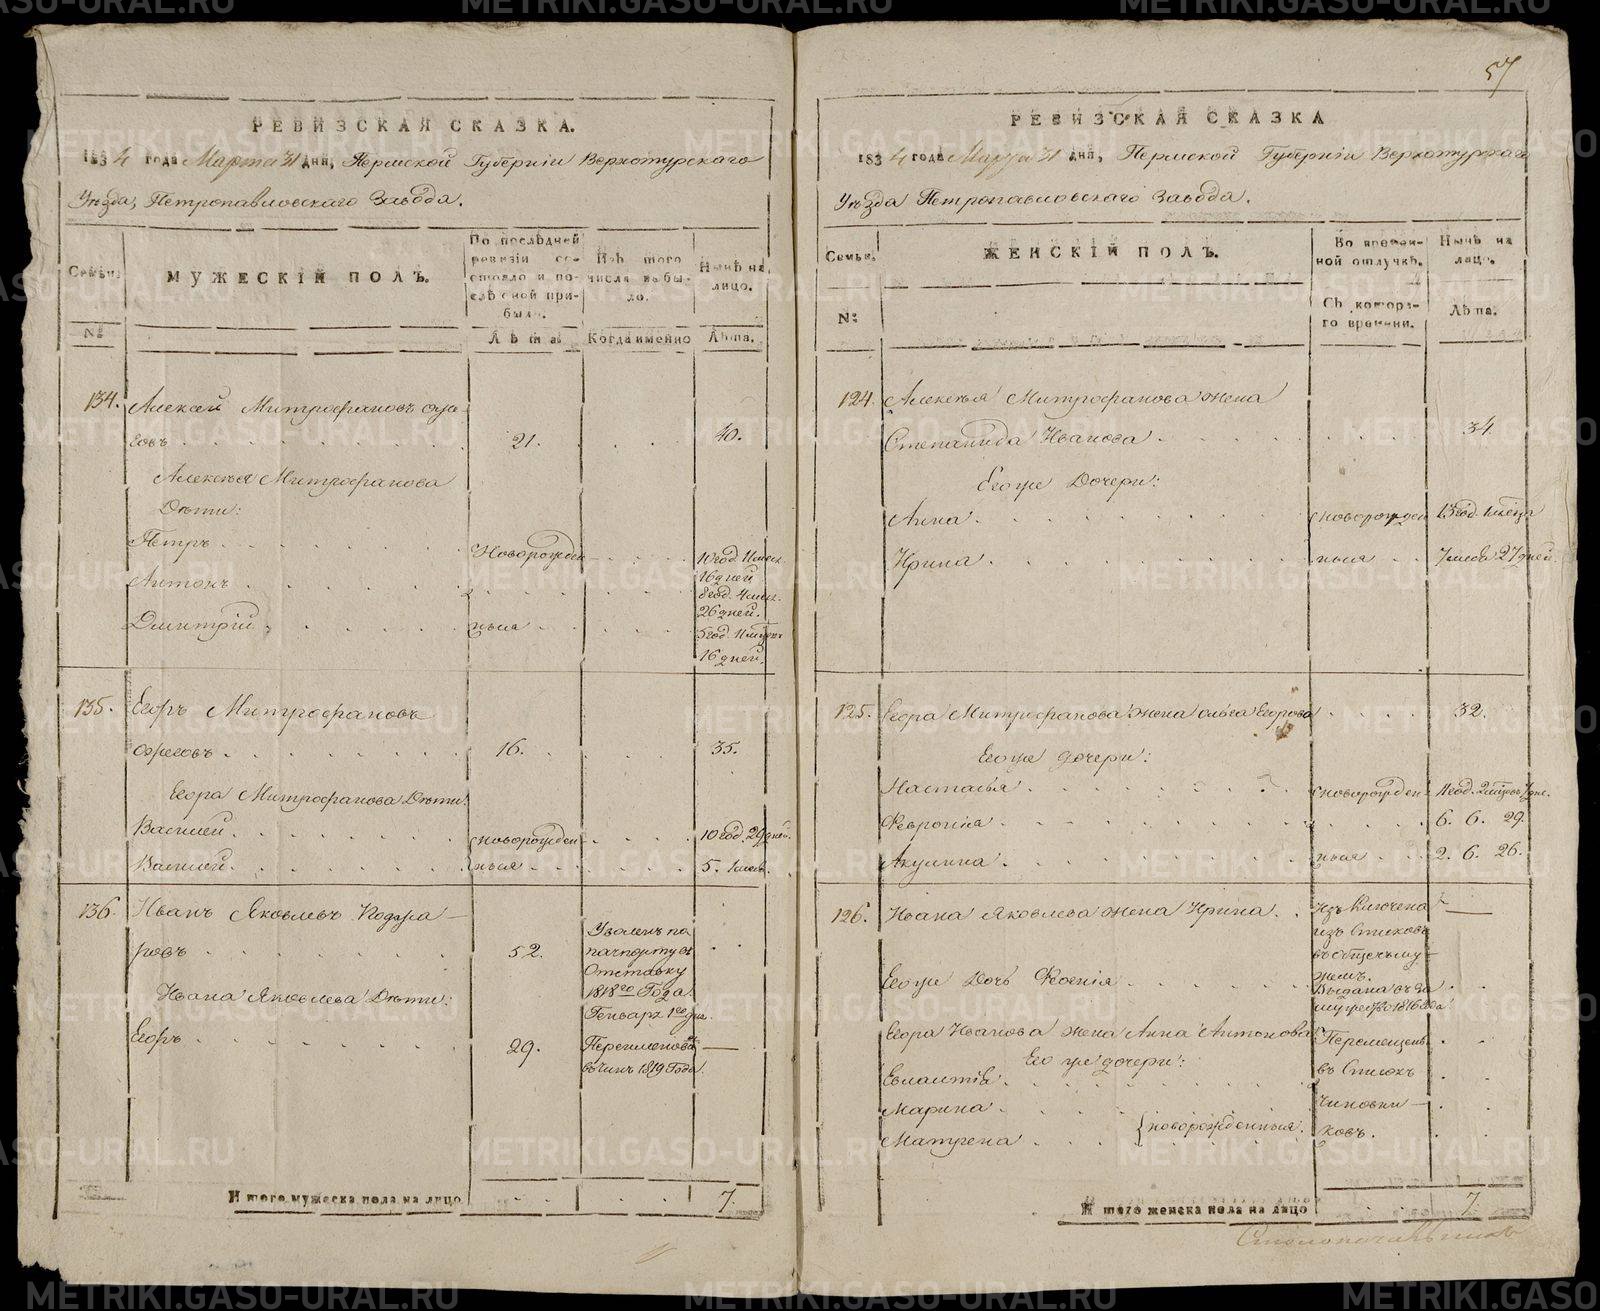 57
РЕВИЗСКАЯ СКАЗКА.
1834 года Марта 31 дня, Пермской Губернiи Верхотурскаго
Уѣзда, Петропавловскаго Завода.
Семьи.
МУЖЕСКIЙ ПОЛЪ.
По послѣдней ревизiи состояло и послѣ оной прибыло.
Изъ того числа выбыло.
Нынѣ на лицо.
№
Лѣта
Когда именно
Лѣта.
134. Алексѣй Митрофановъ
совъ 21. 40.
Алексѣя Митрофанова
Дѣти:
Петръ Новорожден- 10 год. 11 мѣсс.
16 дней
Антонъ 8 год. 4 мѣс.
26 дней.
Дмитрiй ныя 5 год. 11 мѣсс
16 дней.
135. Егоръ Митрофановъ
16. 35.
Егора Митрофанова Дѣти:
Василей новорожден- 10 год. 29 дней.
Василей ныя 5. 1 мѣс.
136. Иванъ Яковлевъ Кодза-
ровъ 52.
Уволенъ по
пачпорту въ
Отставку
1818го Года
Генваря 1го дня.
Ивана Яковлева Дѣти:
Егоръ 29. Переименованъ
въ чинъ 1819 Года.
И того мужеска пола на лицо 7
РЕВИЗСКАЯ СКАЗКА
1834 года Марта 31 дня, Пермской Губернiи Верхотурскаго
Уѣзда Петропавловскаго Завода.
Семьи.
ЖЕНСКIЙ ПОЛЪ.
Во временной отлучкѣ.
Нынѣ на лицо.
№
Съ котораго времени.
Лѣта.
124. Алексѣя Митрофанова жена
Степанида Иванова 34
Его же Дочери:
Анна новорожден 13 год. 1 мѣсяца
Ирина ныя 7 мѣсв 27 дней.
125. Егора Митрофанова жена Ольга Егорова 32.
Его же дочери:
Настасья новорожден- 11 год. 2 мѣсцовъ 7 дне.
Февронiя 6. 6. 29.
Акулина ныя 2. 6. 26.
126. Ивана Яковлева жена Ирина. Изъ Ключена
изъ Списковъ
въ общему-
жемъ.
Его же Дочь Ѳеонiя Выдана въ за
мужество 1816 года
Егора Иванова жена Анна Антонова Перемещены
Его же дочери:
Евлампiя въ Списокъ
Марина чиновни-
Матрена новорожденныя. ковъ.
И того женска пола на лицо 7
Столоначальникъ
METRIKI.GASO-URAL.RU